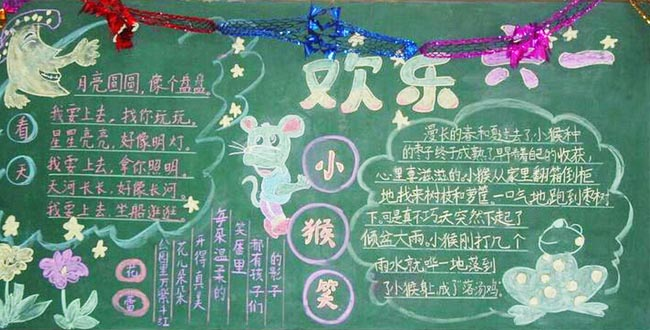 欢乐六一
月亮圆圆,像个盘盘。
看天
我要上去,找你玩玩。
星星亮亮,好像明灯。
我要上去,拿你照明。
天河长长,好像长河
我要上去,坐船逛逛
花
公园里万紫千红
花儿朵朵
开得真美
每朵温柔的
笑厣里
都有孩子们
的影子
小猴笑
漫长的春和夏过去了,小猴种
的枣子终于成熟了,早有自己的收获,
心里喜滋滋的,小猴从家里翻箱倒柜
地找来树枝和萝筐一口气地跑到枣树
下。可是真不巧天突然下起了
倾盆大雨。小猴刚打几个
雨水就哗一地落到
了小猴身上,成了"落汤鸡"